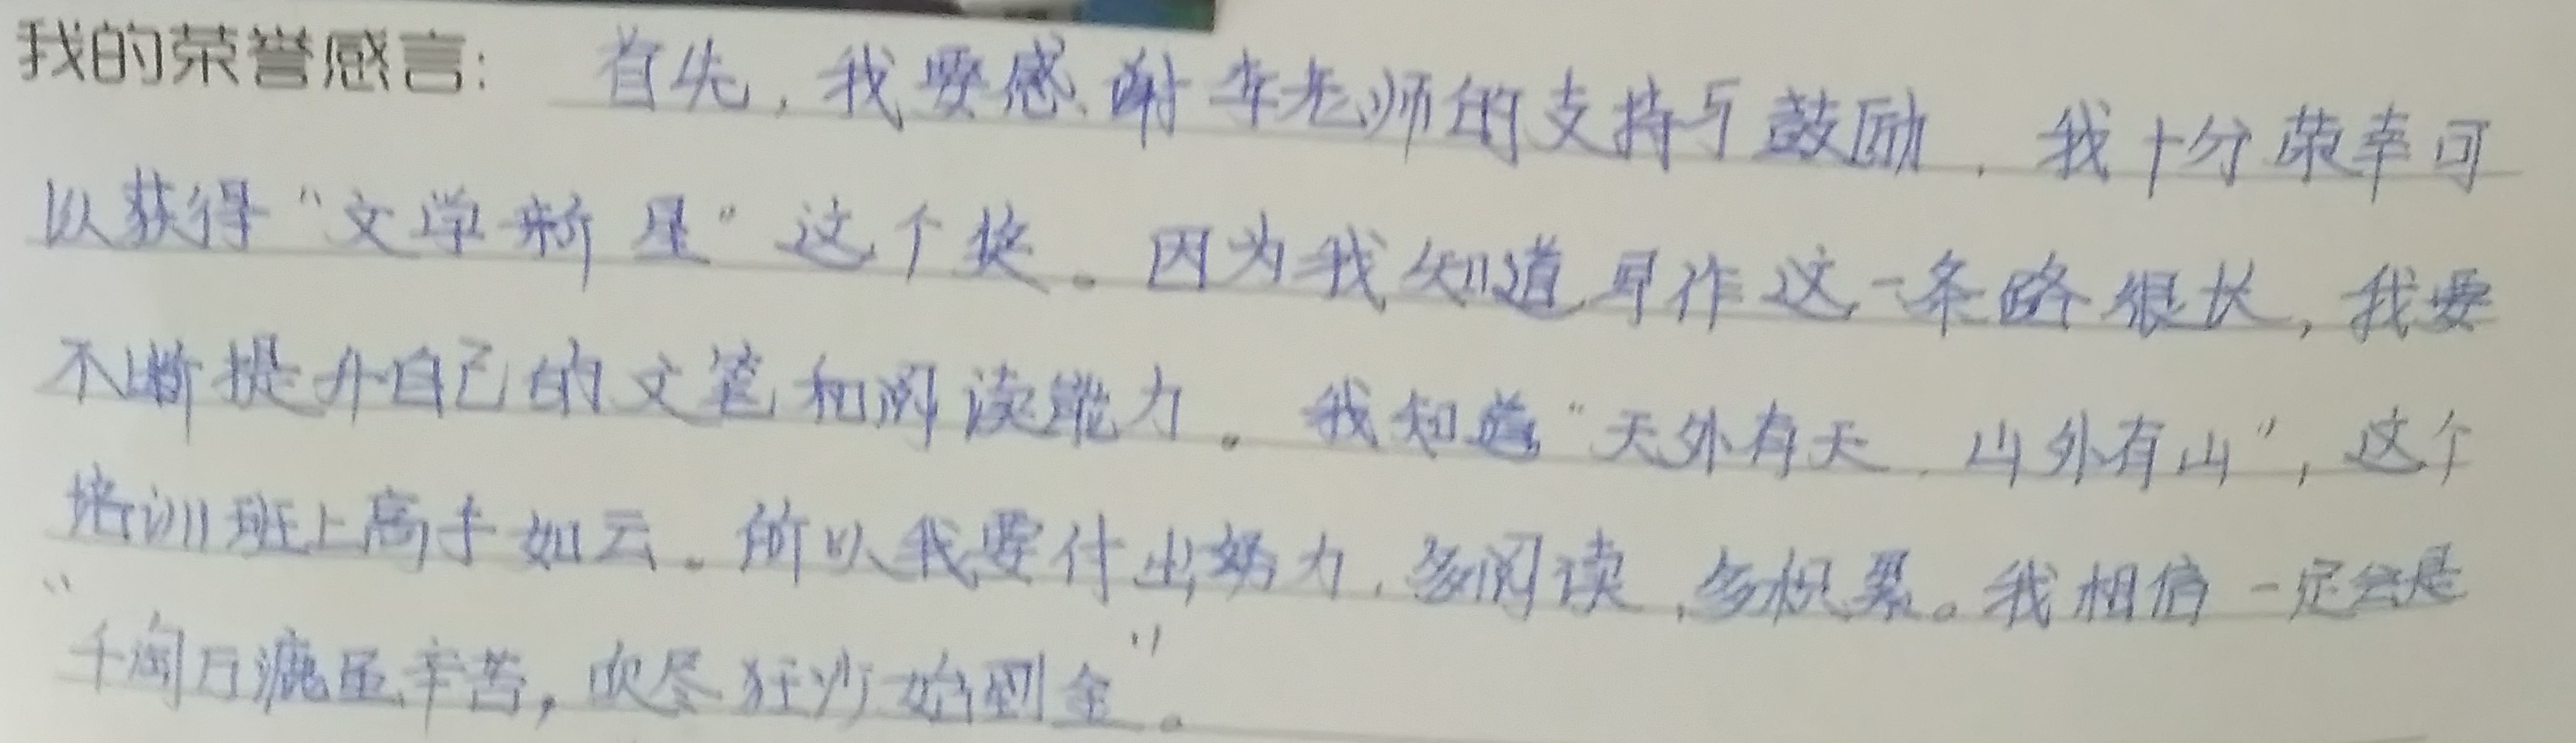 我的荣誉感言：首先，我要感谢李老师的支持与鼓励，我十分荣幸可
以获得“文学新星”这个奖。因为我知道写作这一条路很长，我要
不断提升自己的文笔和阅读能力。我知道“天外有天，山外有山”，这个
培训班上高手如云。所以我要付出努力，多阅读，多积累。我相信一定会是
“千淘万漉虽辛苦，吹尽狂沙始到金”。